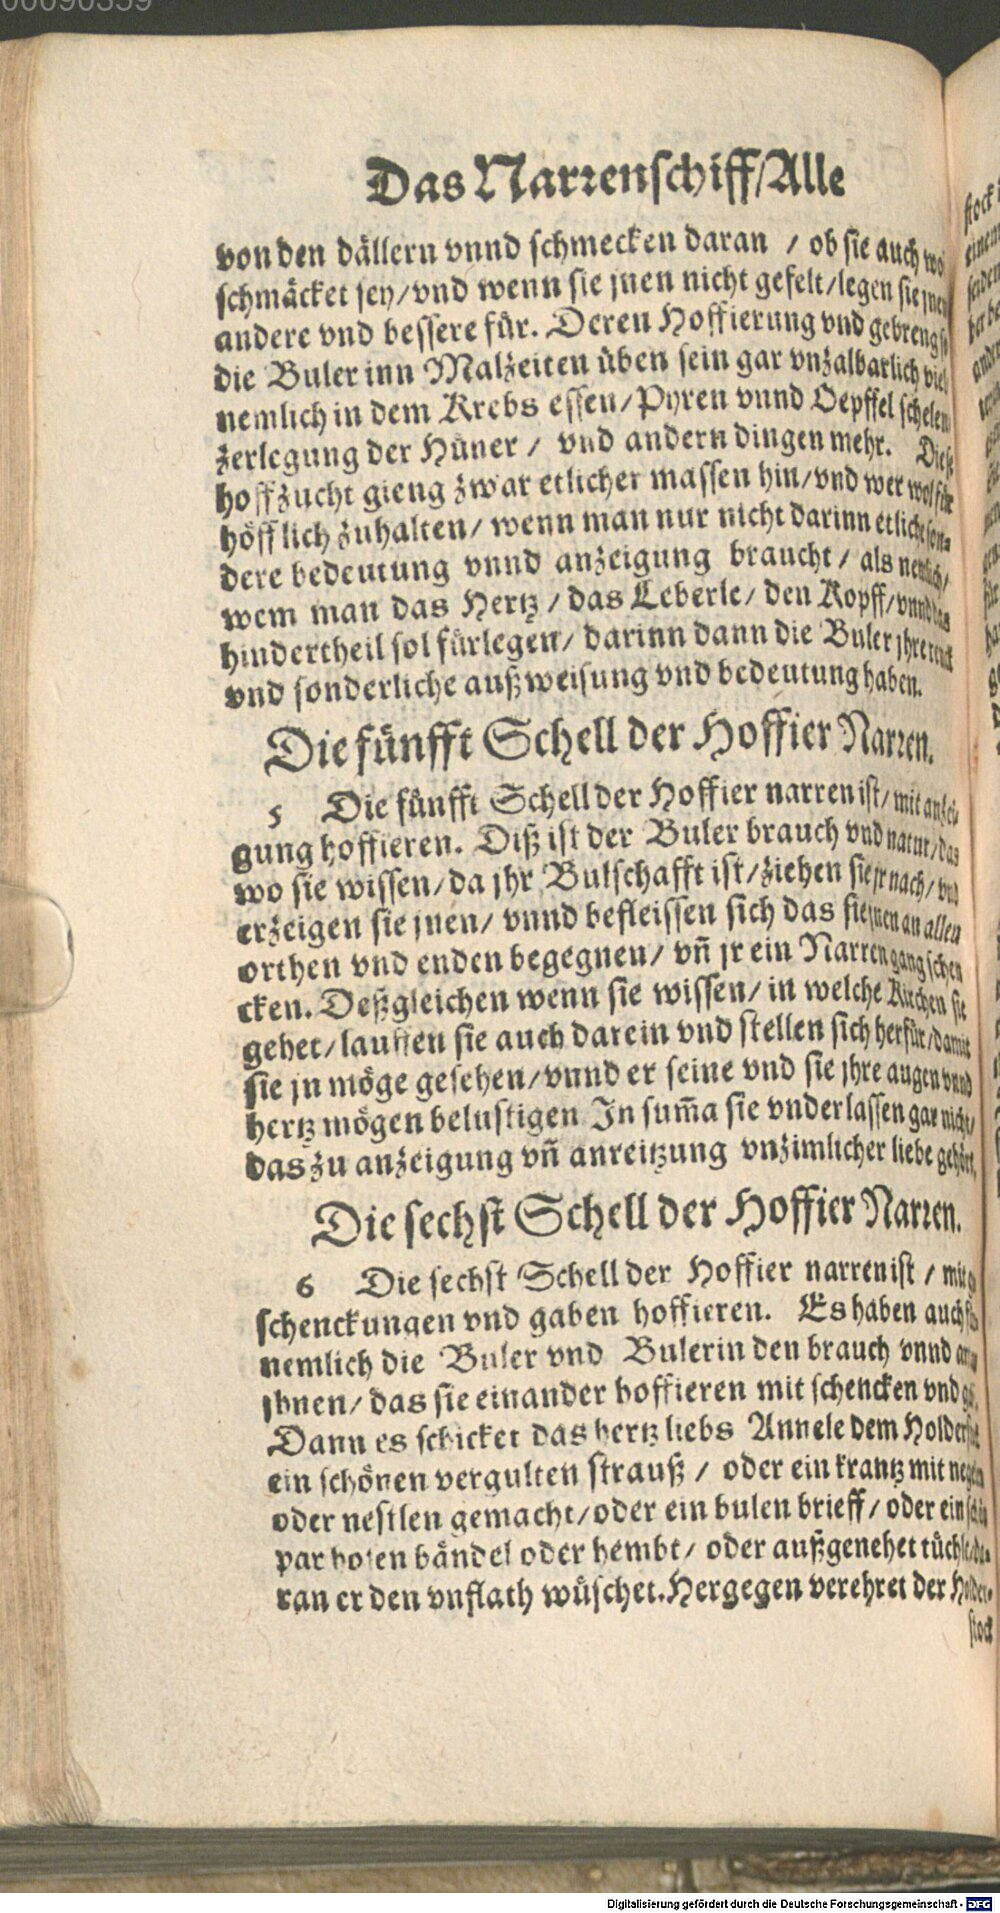 00090359
Das Narrenschiff/Alle
von den dällern vnnd schmecken daran / ob sie auch wol
schmäcket sey/vnd wenn sie jnen nicht gefelt/legen sie jnen
andere vnd bessere für. Deren Hoffierung vnd gebreng so
die Buler inn Malzeiten üben sein gar vnzalbarlich viel
nemlich in dem Krebs essen/Pyren vnnd Oepffel schelen
zerlegung der Hüner / vnd andern dingen mehr. Diese
hoffzucht gieng zwar etlicher massen hin/vnd wer wol für
höfflich zuhalten/ wenn man nur nicht darinn etliche son-
dere bedeutung vnnd anzeigung braucht / als nemlich/
wem man das Hertz / das Leberle/ den Kopff/vnnd das
hindertheil sol fürlegen/ darinn dann die Buler jhre
vnd sonderliche außweisung vnd bedeutung haben.
Die fünfft Schell der Hoffier Narren.
5 Die fünfft Schell der Hoffier narren ist/ mit anzei-
gung hoffieren. Diß ist der Buler brauch vnd natur/das
wo sie wissen/da jhr Bulschafft ist/ziehen sie jr nach/vnd
erzeigen sie jnen/ vnnd befleissen sich das sie jnen an allen
orthen vnd enden begegnen/ vñ jr ein Narrengang schen
cken. Deßgleichen wenn sie wissen/ in welche Kirchen sie
gehet/lauffen sie auch darein vnd stellen sich herfür/damit
sie jn möge gesehen/vnnd er seine vnd sie jhre augen vnnd
hertz mögen belustigen In sum̃a sie vnderlassen gar nicht/
das zu anzeigung vñ anreitzung vnzimlicher liebe gehört.
Die sechst Schell der Hoffier Narren.
6 Die sechst Schell der Hoffier narren ist / mit
schenckungen vnd gaben hoffieren. Es haben auch
nemlich die Buler vnd Bulerin den brauch vnnd
jhnen/ das sie einander hoffieren mit schencken vnd
Dann es schicket das hertz liebs Annele dem
ein schönen vergulten strauß / oder ein krantz mit
oder nestlen gemacht/oder ein bulen brieff/ oder ein
par hosen bändel oder hembt/ oder außgenehet da-
ran er den vnflath wüschet. Hergegen verehret der Holder-
stock
Digitalisierung gefördert durch die Deutsche Forschungsgemeinschaft - DFG